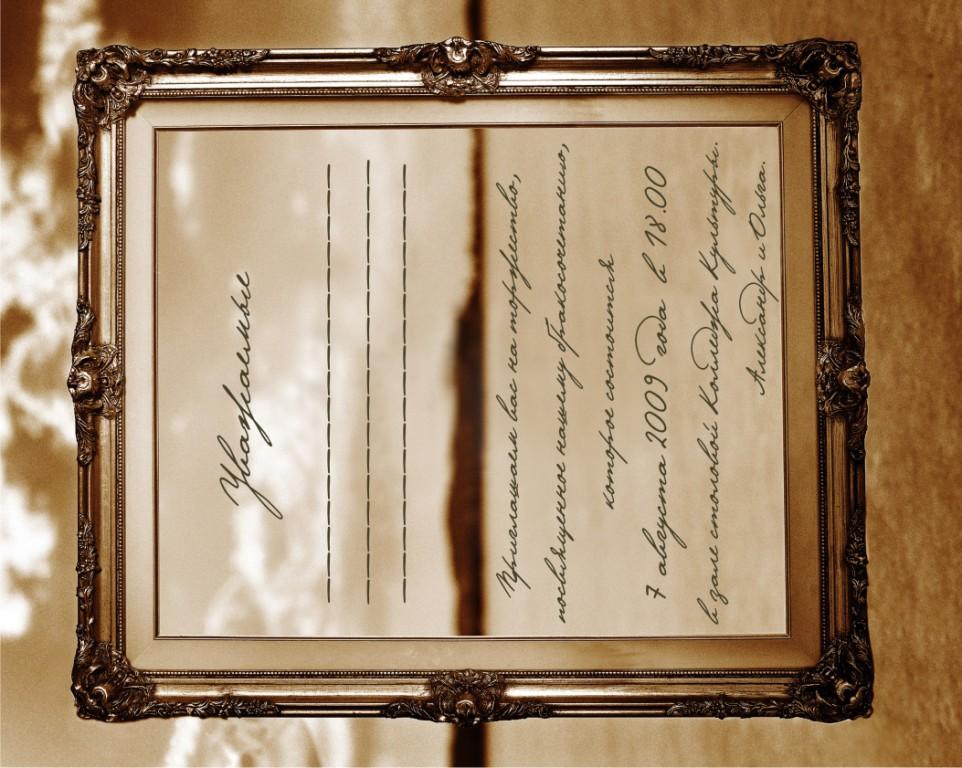 Уважаемые
Приглашаем вас на торжество,
посвященное нашему бракосочетанию,
которое состоится
7 августа 2009 года в 18.00
в зале столовой Колледжа Культуры.
Александр и Ольга.